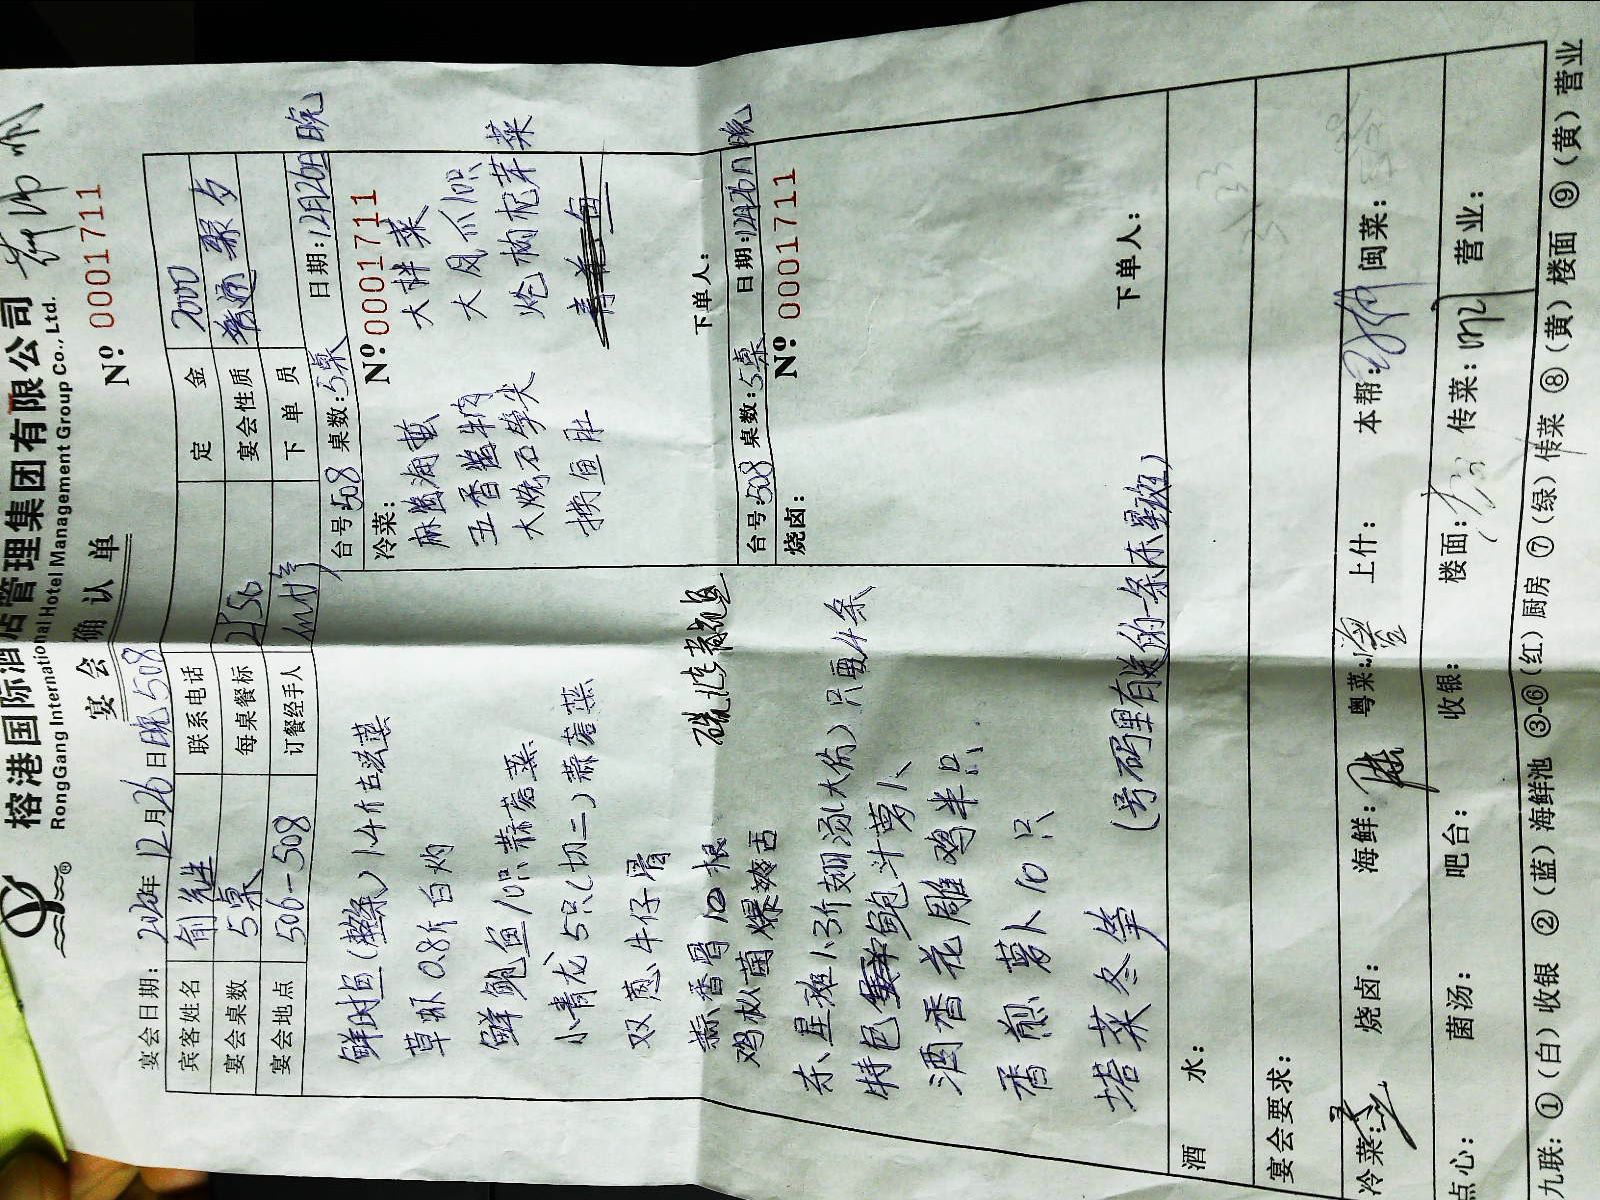 榕港国际酒店管理集团有限公司
RongGang International Hotel Management Group Co., Ltd.
宴会确认单
№ 0001711
宴会日期: 年12月26日晚508
宾客姓名 联系电话 定金 2000
宴会桌数 5桌 每桌餐标 宴会性质 普通聚
宴会地点 506-508 订餐经手人 下单员
鲜时鱼(整条)1.4斤古法蒸
草虾0.8斤白灼
鲜鲍鱼10只蒜蓉蒸
小青龙5只(切二)蒜蓉蒸
双葱牛仔骨
蒜香骨10根
鸡枞菌爆
东星斑1.3斤翅汤 只要4条
特色 鲍汁萝卜
酒香花雕鸡半只
香煎萝卜10只
塔菜冬笋
(号码里有 的一条东星斑)
台号:508 桌数:5桌 日期:12月26日晚
冷菜: № 0001711
麻酱海蜇 大拌菜
五香酱牛肉 大凤爪10只
大烧石笋尖 炝枸杞芽菜
拼鱼肚
下单人:
台号:508 桌数:5桌 日期:12月26日晚
烧卤: № 0001711
下单人:
酒水:
宴会要求:
冷菜: 烧卤: 海鲜: 粤菜: 上什: 本帮: 闽菜:
点心: 菌汤: 吧台: 收银: 楼面: 传菜: 营业:
九联: ①(白)收银 ②(蓝)海鲜池 ③-⑥(红)厨房 ⑦(绿)传菜 ⑧(黄)楼面 ⑨(黄)营业